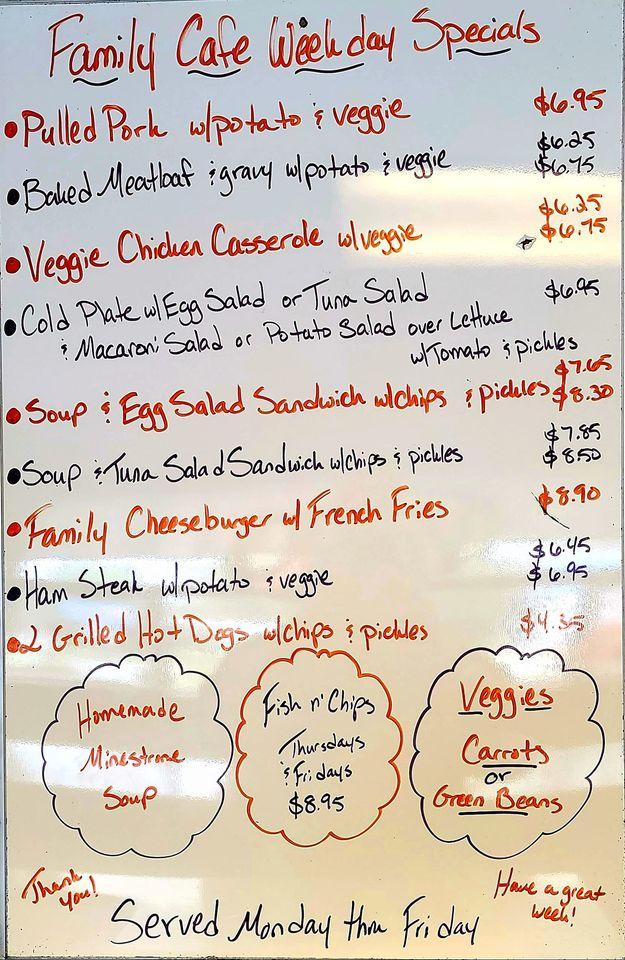 Family Cafe Weekday Specials
• Pulled Pork w/potato & veggie $6.95
• Baked Meatloaf & gravy w/potato & veggie $6.25 $6.75
• Veggie Chicken Casserole w/veggie $6.25 $6.75
• Cold Plate w/Egg Salad or Tuna Salad $6.95
& Macaroni Salad or Potato Salad over Lettuce
w/Tomato & pickles
• Soup & Egg Salad Sandwich w/chips & pickles $7.65 $8.30
• Soup & Tuna Salad Sandwich w/chips & pickles $7.85 $8.50
• Family Cheeseburger w/ French Fries $8.90
• Ham Steak w/potato & veggie $6.45 $6.95
• 2 Grilled Hot Dogs w/chips & pickles $4.35
Homemade
Minestrone
Soup
Fish n' Chips
Thursdays
& Fridays
$8.95
Veggies
Carrots
or
Green Beans
Thank
you!
Have a great
week!
Served Monday thru Friday